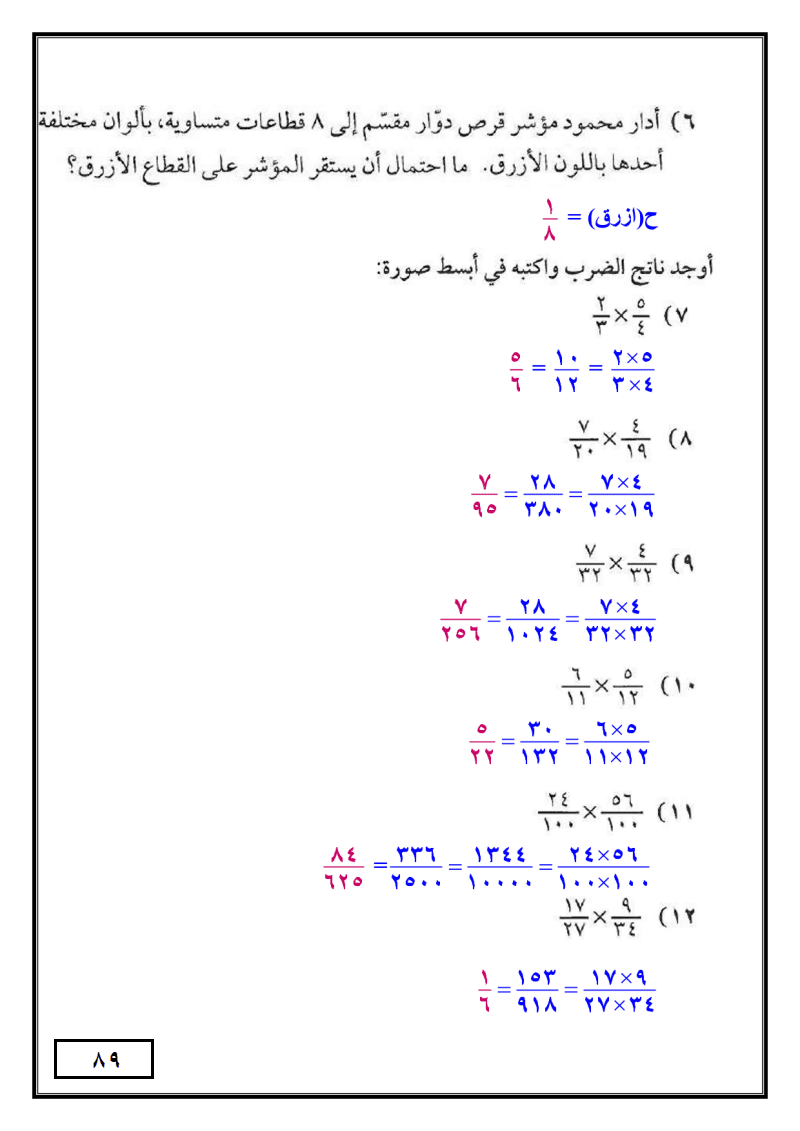 ٦) أدار محمود مؤشر قرص دوّار مقسّم إلى ٨ قطاعات متساوية، بألوان مختلفة
أحدها باللون الأزرق. ما احتمال أن يستقر المؤشر على القطاع الأزرق؟
ح(ازرق) = ١/٨
أوجد ناتج الضرب واكتبه في أبسط صورة:
٧) ٥/٤ × ٢/٣
٥×٢/٤×٣ = ١٠/١٢ = ٥/٦
٨) ٤/١٩ × ٧/٢٠
٤×٧/١٩×٢٠ = ٢٨/٣٨٠ = ٧/٩٥
٩) ٤/٣٢ × ٧/٣٢
٤×٧/٣٢×٣٢ = ٢٨/١٠٢٤ = ٧/٢٥٦
١٠) ٥/١٢ × ٦/١١
٥×٦/١٢×١١ = ٣٠/١٣٢ = ٥/٢٢
١١) ٥٦/١٠٠ × ٢٤/١٠٠
٥٦×٢٤/١٠٠×١٠٠ = ١٣٤٤/١٠٠٠٠ = ٣٣٦/٢٥٠٠ = ٨٤/٦٢٥
١٢) ٩/٣٤ × ١٧/٢٧
٩×١٧/٣٤×٢٧ = ١٥٣/٩١٨ = ١/٦
٨٩